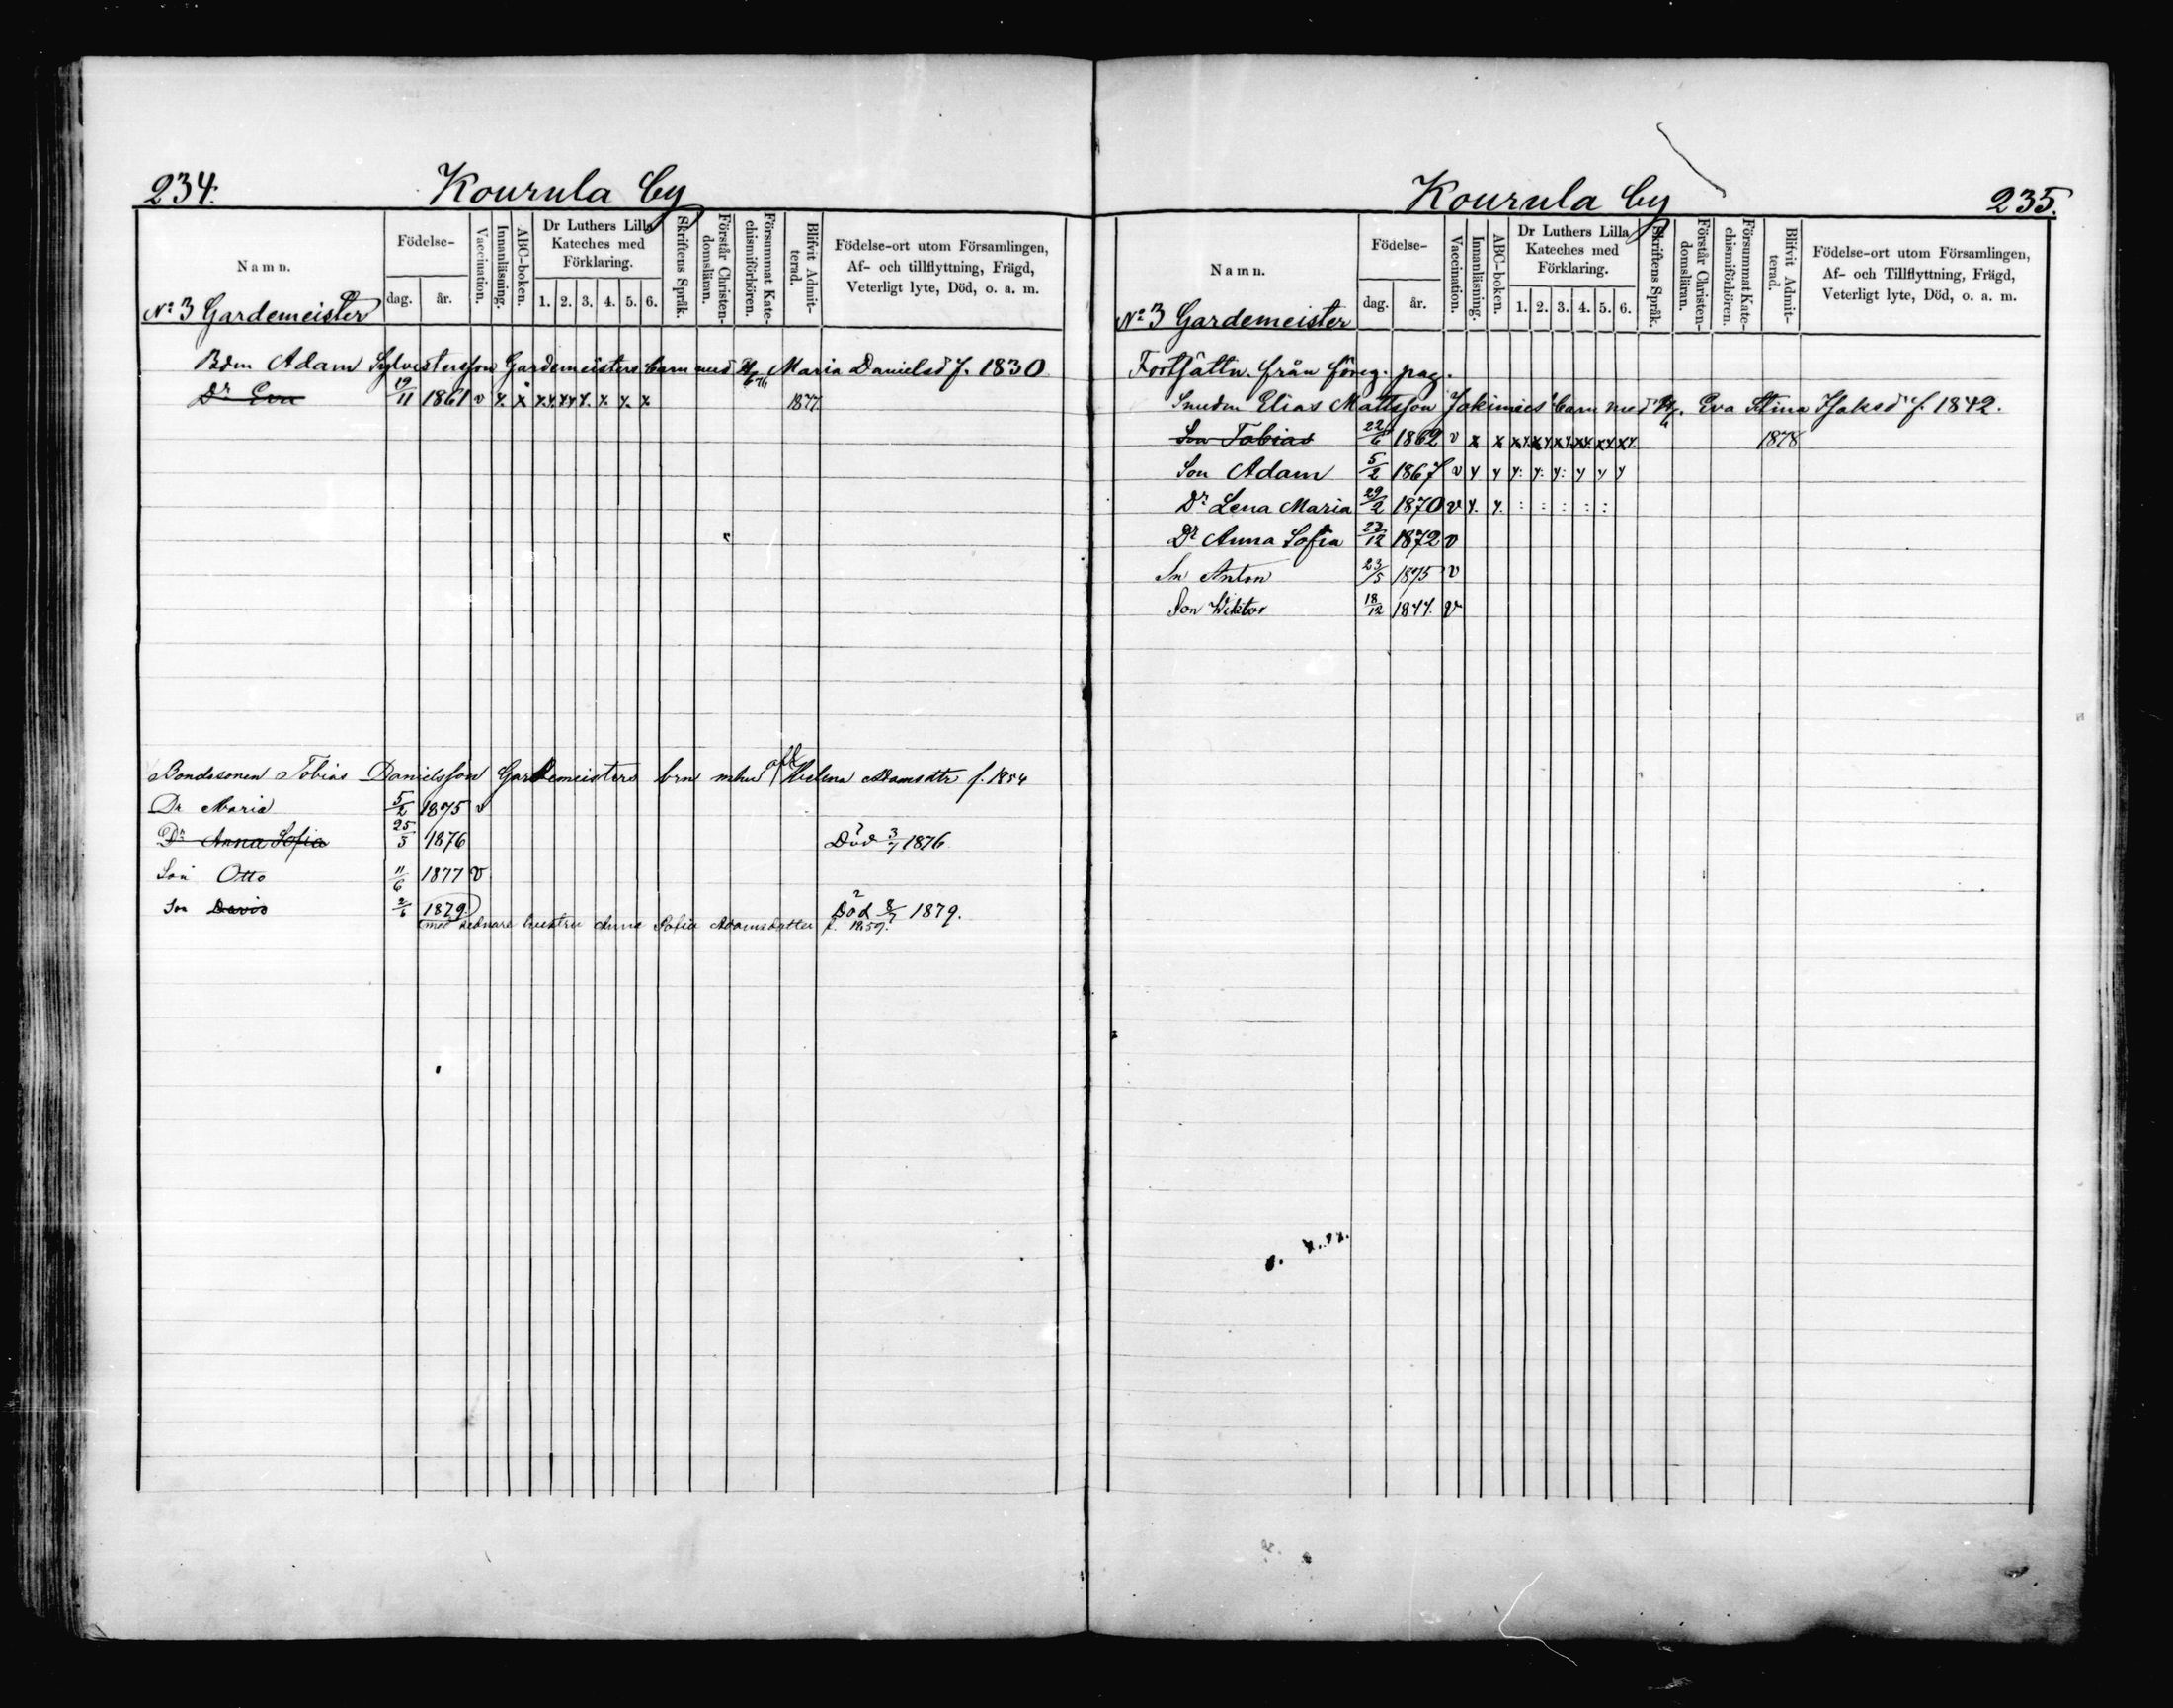 234.
Kourula by
Namn.
Födelse-
dag. år.
Vaccination.
Innanläsning.
ABC-boken.
Dr Luthers Lilla Kateches med Förklaring.
1. 2. 3. 4. 5. 6.
Skriftens Språk.
Förstår Christendomsläran.
Försummat Katechismiförhören.
Blifvit Admitterad.
Födelse-ort utom Församlingen,
Af- och tillflyttning, Frägd,
Veterligt lyte, Död, o. a. m.
No 3 Gardemeister
Bdn Adam Sylvestersson Gardemeisters barn med Maria Danielsd f. 1830
Dr Eva 19/11 1861 v x x 1877
Bondesonen Tobias Danielsson Gardemeisters brn m hu afl Helena Adamsdtr f. 1854
Dr Maria 5/2 1875 v
Dr Anna Sofia 25/5 1876 Död 3/7 1876
Son Otto 11/6 1877 v
Son David 2/6 1879 Död 8/7 1879.
med sednare hustru Anna Sofia Adamsdotter f. 1859.
Kourula by
235.
Namn.
Födelse-
dag. år.
Vaccination.
Innanläsning.
ABC-boken.
Dr Luthers Lilla Kateches med Förklaring.
1. 2. 3. 4. 5. 6.
Skriftens Språk.
Förstår Christendomsläran.
Försummat Katechismiförhören.
Blifvit Admitterad.
Födelse-ort utom Församlingen,
Af- och Tillflyttning, Frägd,
Veterligt lyte, Död, o. a. m.
No 3 Gardemeister
Fortsättn. från föreg. pag.
Smeden Elias Mattsson Jokinies barn med Eva Stina Isaksd f. 1842.
Son Tobias 22/6 1862 v x x 1878
Son Adam 5/2 1867 v
Dr Lena Maria 29/2 1870 v
Dr Anna Sofia 27/12 1872 v
Sn Anton 23/5 1875 v
Son Wiktor 18/12 1877. v